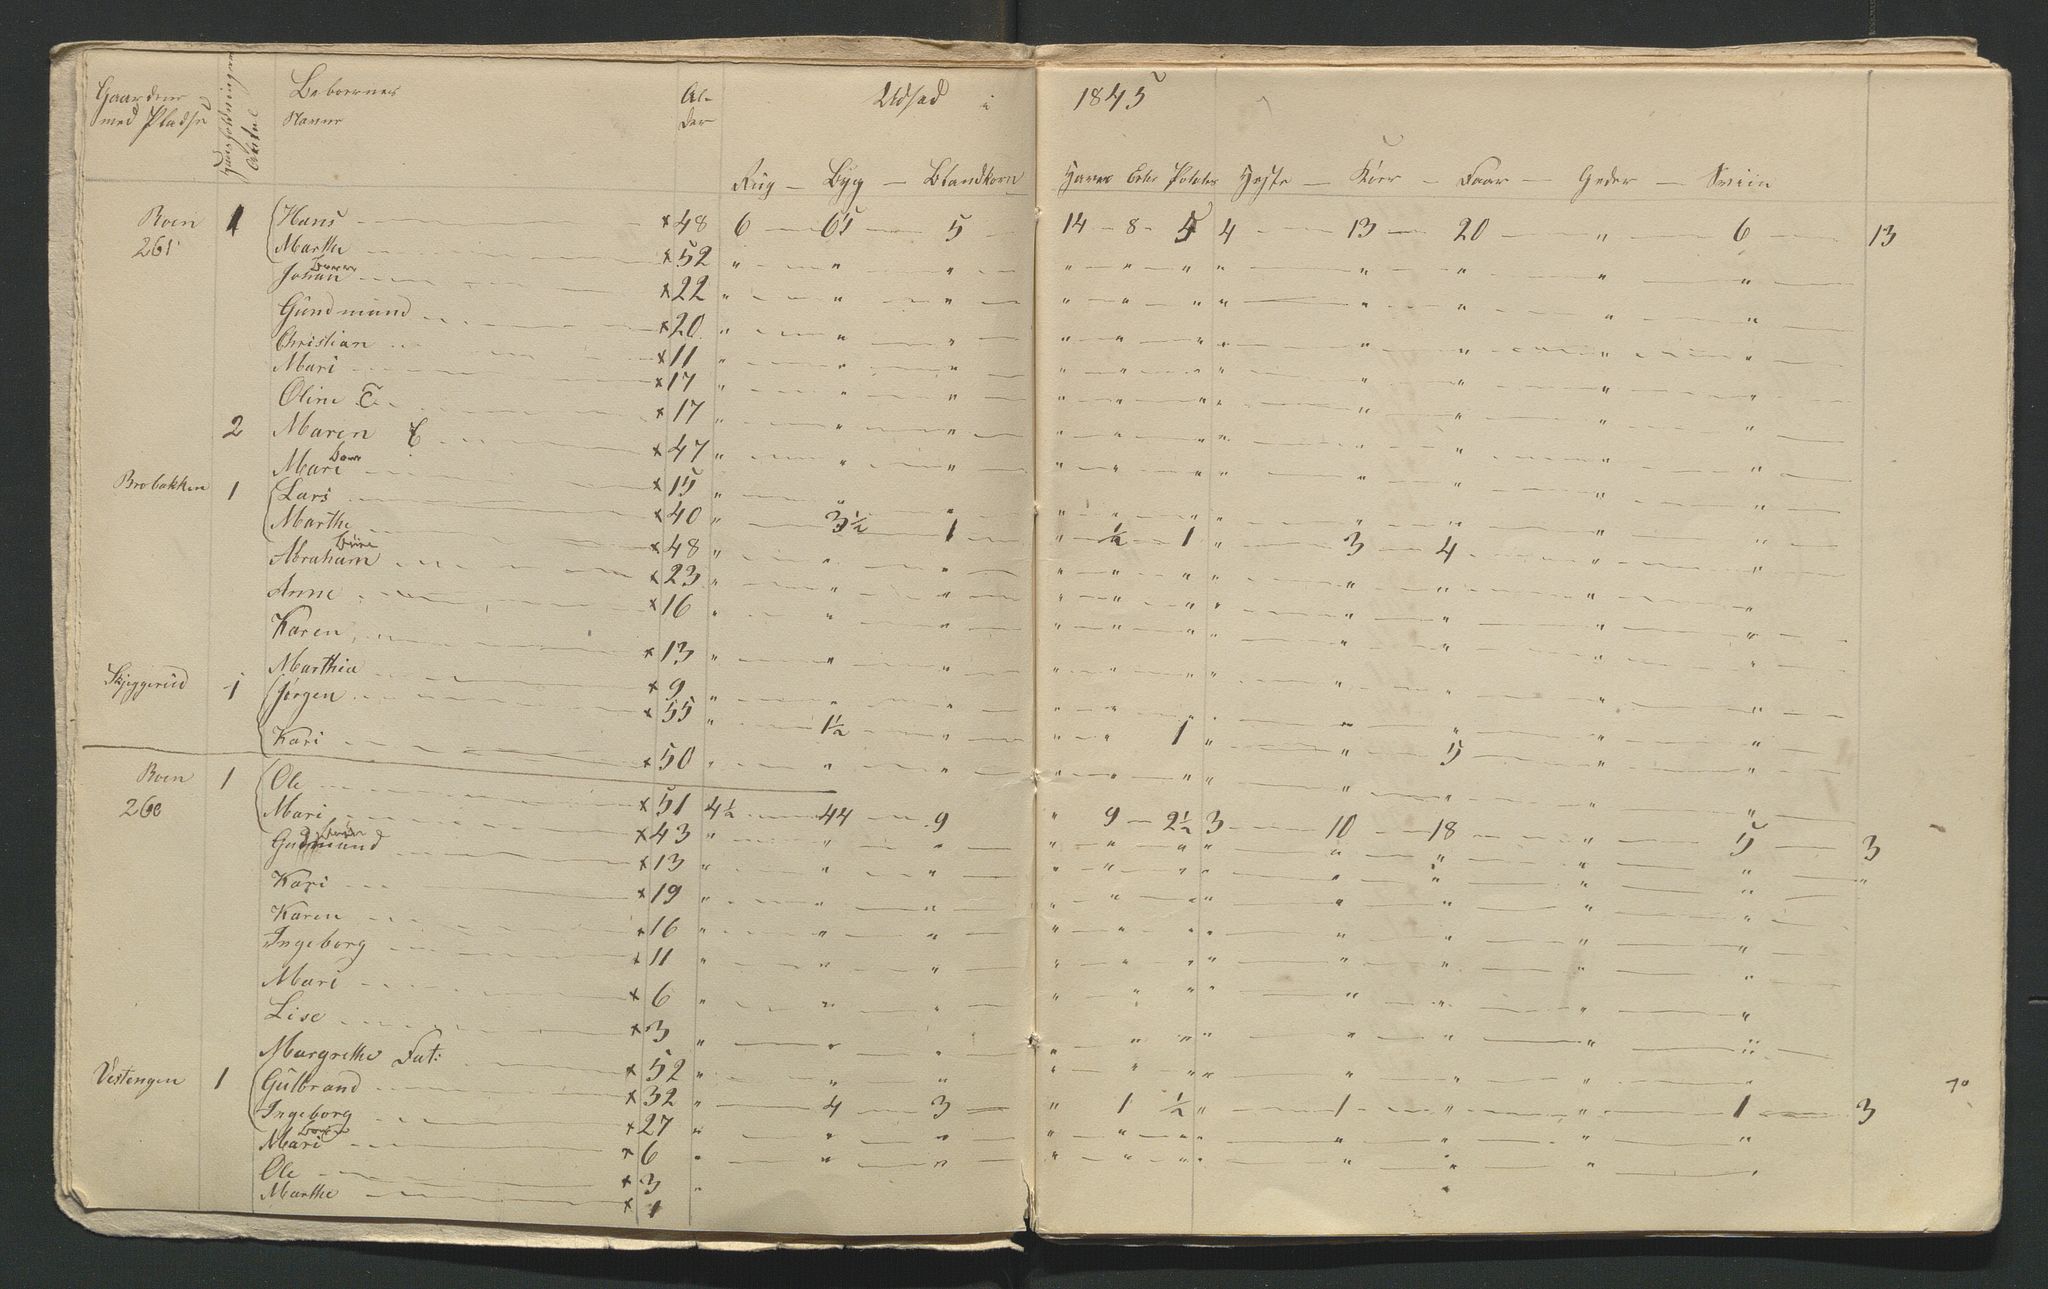 Gaardene med Pladse Huusholdningernes Antal Beboernes Navne Alder Udsæd i 1845
Rug — Byg — Blandkorn Havre Erter Poteter Heste — Kører — Faar — Geder — Sviin
Boen 261 1 Hans × 48 6 65 5 14 8 5 4 13 20 " 6 13
Marthe × 52 " " " " " " " " " " "
Johan × 22 " " " " " " " " " " "
Gundmund × 20 " " " " " " " " " " "
Christian × 11 " " " " " " " " " " "
Mari × 17 " " " " " " " " " " "
Oline T × 17 " " " " " " " " " " "
2 Maren × 47 " " " " " " " " " " "
Mari × 15 " " " " " " " " " " "
Brobakken 1 Lars × 40 " 3½ 1 " ½ 1 " 3 4 " "
Marthe × 48 " " " " " " " " " " "
Abraham × 23 " " " " " " " " " " "
Anne × 16 " " " " " " " " " " "
Karen × 13 " " " " " " " " " " "
Marthia × 9 " " " " " " " " " " "
Skjeggerud 1 Jørgen × 55 " 1½ " " " 1 " " 5 " "
Kari × 50 " " " " " " " " " " "
Boen 260 1 Ole × 51 4½ 44 9 " 9 2½ 3 10 18 " 5 3
Mari × 43 " " " " " " " " " " " "
Gudmund × 13 " " " " " " " " " " "
Kari × 19 " " " " " " " " " " "
Karen × 16 " " " " " " " " " " "
Ingeborg × 11 " " " " " " " " " " "
Mari × 6 " " " " " " " " " " "
Lise × 3 " " " " " " " " " " "
Margrethe Fat: × 52 " " " " " " " " " " "
Vestengen 1 Gulbrand × 32 " 4 3 " 1 ½ " 1 " " 1 3
Ingeborg × 27 " " " " " " " " " " "
Mari × 6 " " " " " " " " " " "
Ole × 3 "
Marthe × 1